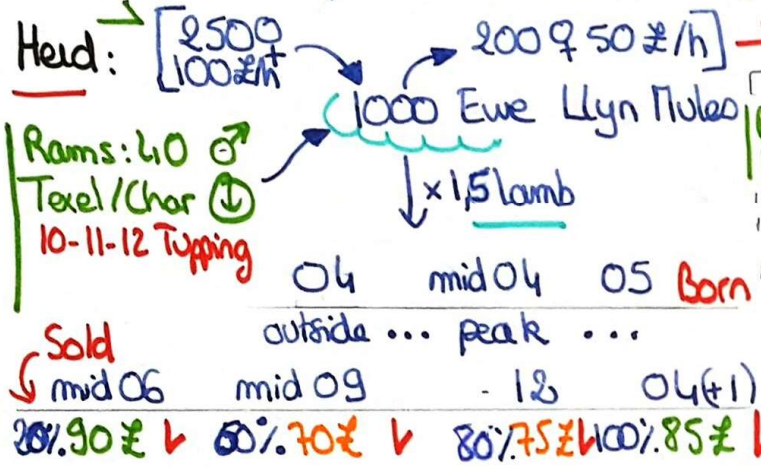 Herd: [250♀ 100£/h → 200♀ 50£/h]
1000 Ewe Llyn Mules
Rams: 40 ♂
Texel/Char ↓
x 1,5 lamb
10-11-12 Tupping
04 mid 04 05 Born
outside ... peak ...
Sold
mid 06 mid 09 - 12 04(+1)
20% 90£ 60% 70£ 80% 75£ 100% 85£